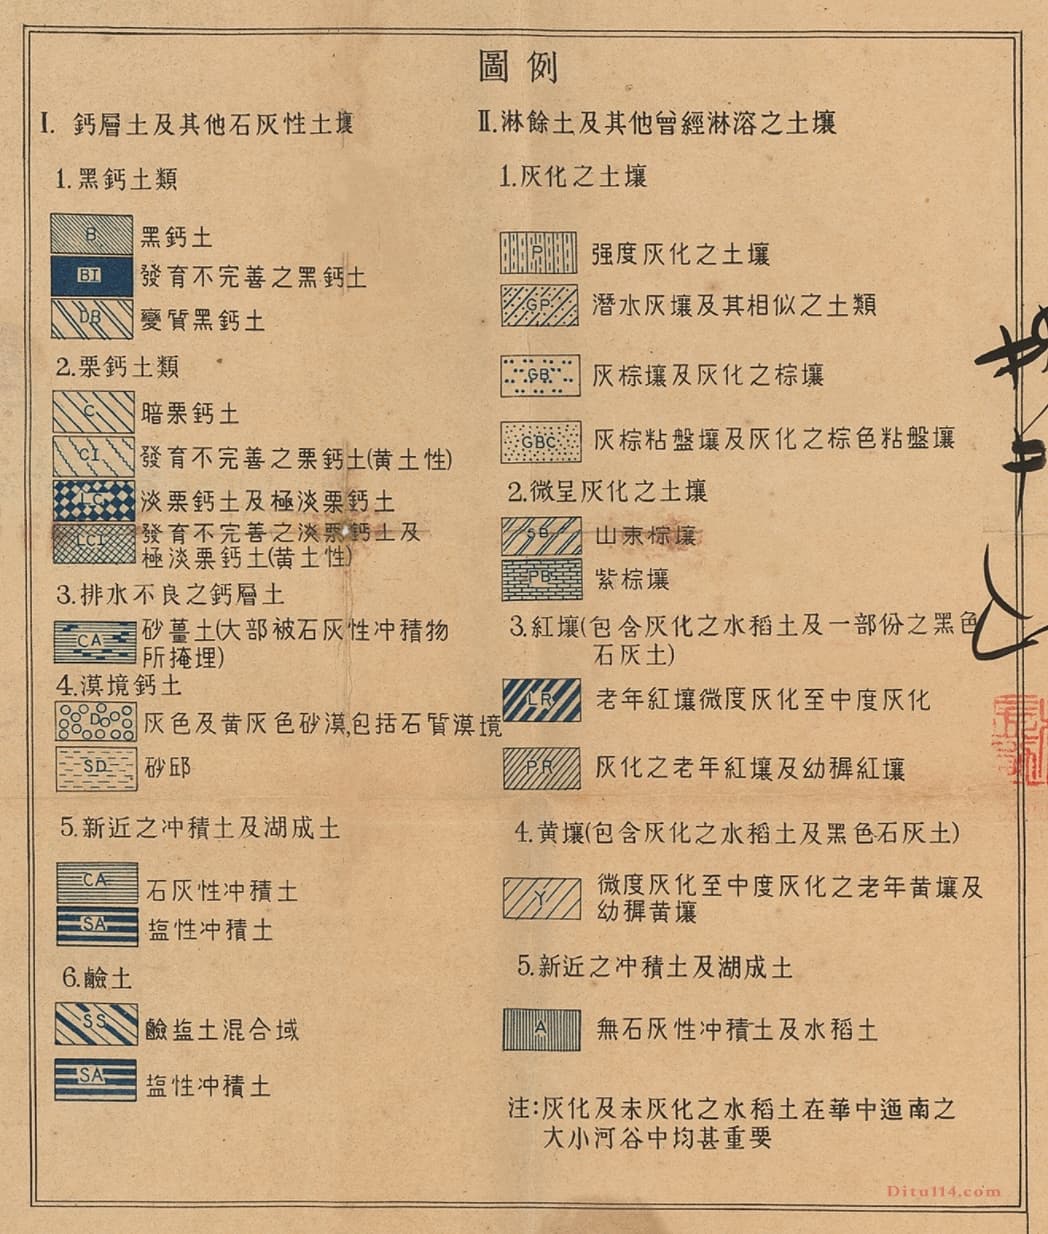 圖例
I. 鈣層土及其他石灰性土壤
1.黑鈣土類
B 黑鈣土
BI 發育不完善之黑鈣土
DB 變質黑鈣土
2.栗鈣土類
C 暗栗鈣土
CI 發育不完善之栗鈣土(黄土性)
LC 淡栗鈣土及極淡栗鈣土
LCI 發育不完善之淡栗鈣土及
極淡栗鈣土(黄土性)
3.排水不良之鈣層土
CA 砂薑土(大部被石灰性冲積物
所掩埋)
4.漠境鈣土
D 灰色及黄灰色砂漠,包括石質漠境
SD 砂邱
5.新近之冲積土及湖成土
CA 石灰性冲積土
SA 塩性冲積土
6.鹼土
SS 鹼塩土混合域
SA 塩性冲積土
II.淋餘土及其他曾經淋溶之土壤
1.灰化之土壤
P 强度灰化之土壤
GP 潛水灰壤及其相似之土類
GB 灰棕壤及灰化之棕壤
GBC 灰棕粘盤壤及灰化之棕色粘盤壤
2.微呈灰化之土壤
SB 山東棕壤
PB 紫棕壤
3.紅壤(包含灰化之水稻土及一部份之黑色
石灰土)
LR 老年紅壤微度灰化至中度灰化
PR 灰化之老年紅壤及幼穉紅壤
4.黄壤(包含灰化之水稻土及黑色石灰土)
Y 微度灰化至中度灰化之老年黄壤及
幼穉黄壤
5.新近之冲積土及湖成土
A 無石灰性冲積土及水稻土
注:灰化及未灰化之水稻土在華中迤南之
大小河谷中均甚重要
Ditu114.com